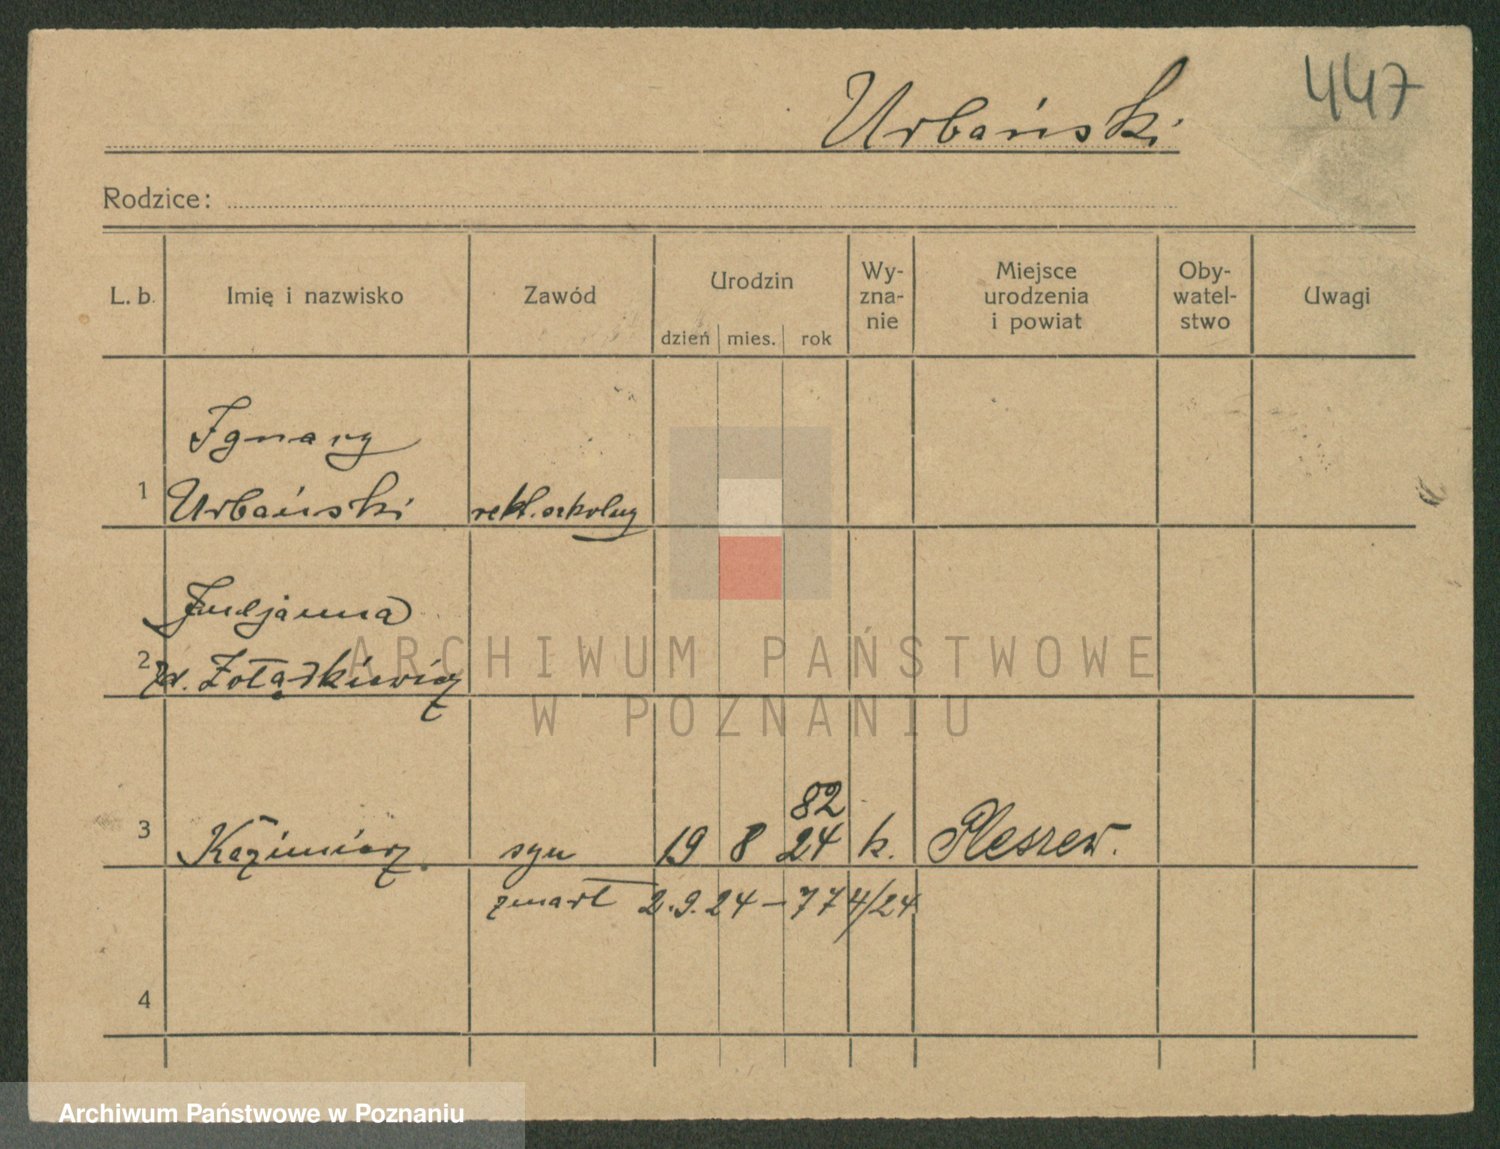 447
Urbański
Rodzice:
L. b. Imię i nazwisko Zawód Urodzin Wy-zna-nie Miejsce urodzenia i powiat Oby-watel-stwo Uwagi
dzień mies. rok
Ignacy
1 Urbański rekt. szkolny
Juljanna
2 zd. Żołądkiewicz
82
3 Kazimierz. syn 19 8 24 k. Pleszew.
zmarł 2.9.24 – 774/24
4
ARCHIWUM PAŃSTWOWE
W POZNANIU
Archiwum Państwowe w Poznaniu